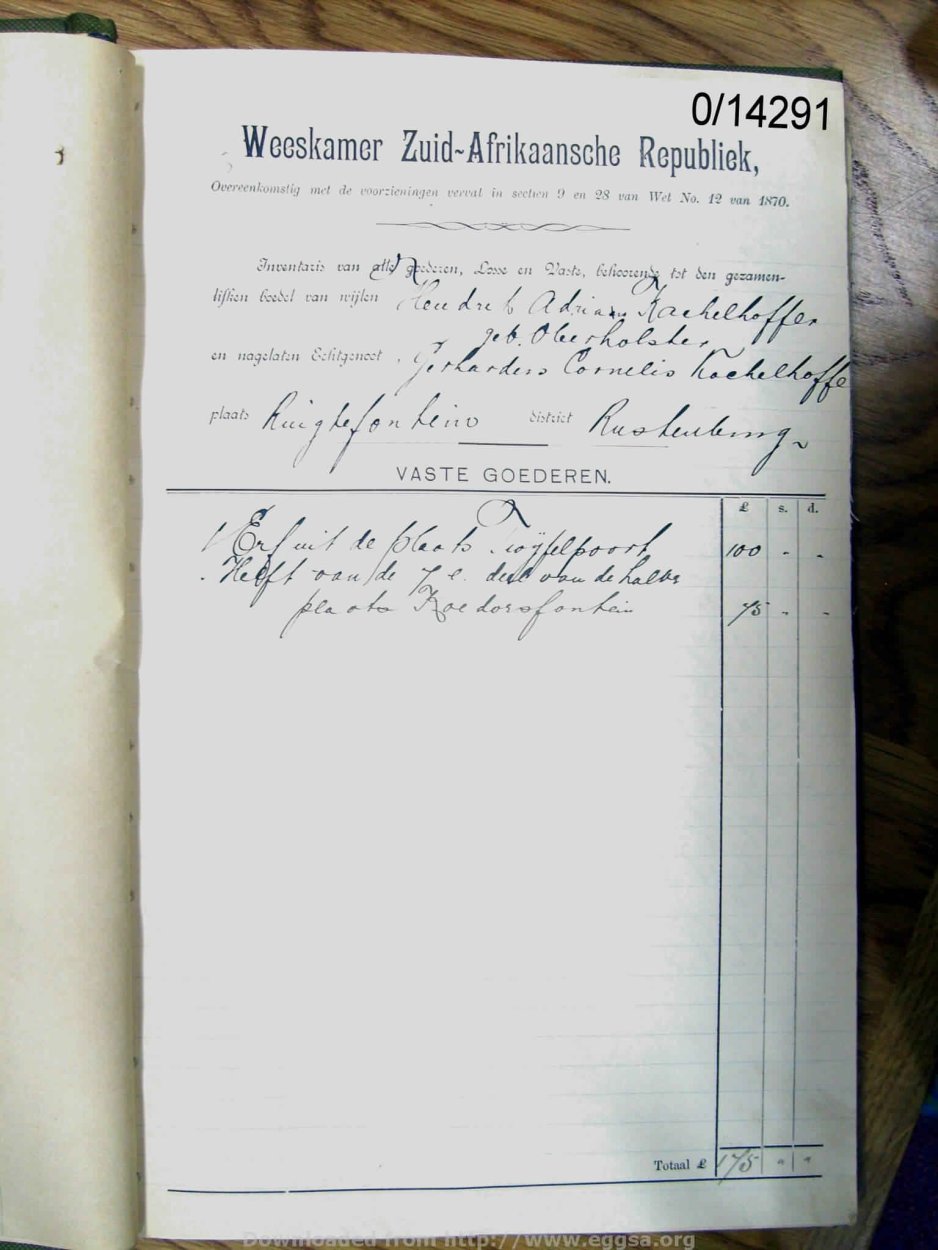 0/14291
Weeskamer Zuid-Afrikaansche Republiek,
Overeenkomstig met de voorzieningen vervat in sectien 9 en 28 van Wet No. 12 van 1870.
Inventaris van alle goederen, Losse en Vaste, behoorende tot den gezamen-
lijken boedel van wijlen Hendrek Adriana Kachelhoffer
geb. Oberholster
en nagelaten Echtgenoot Gerhardus Cornelis Kachelhoffe
plaats fontein district Rustenburg
VASTE GOEDEREN.
£ s. d.
1 Erf uit de plaats Twyfelpoort 100 - -
Helft van de 7e deel van de halve
plaats Koedoesfontein 75 - -
Totaal £ 175 " "
Downloaded from http://www.eggsa.org